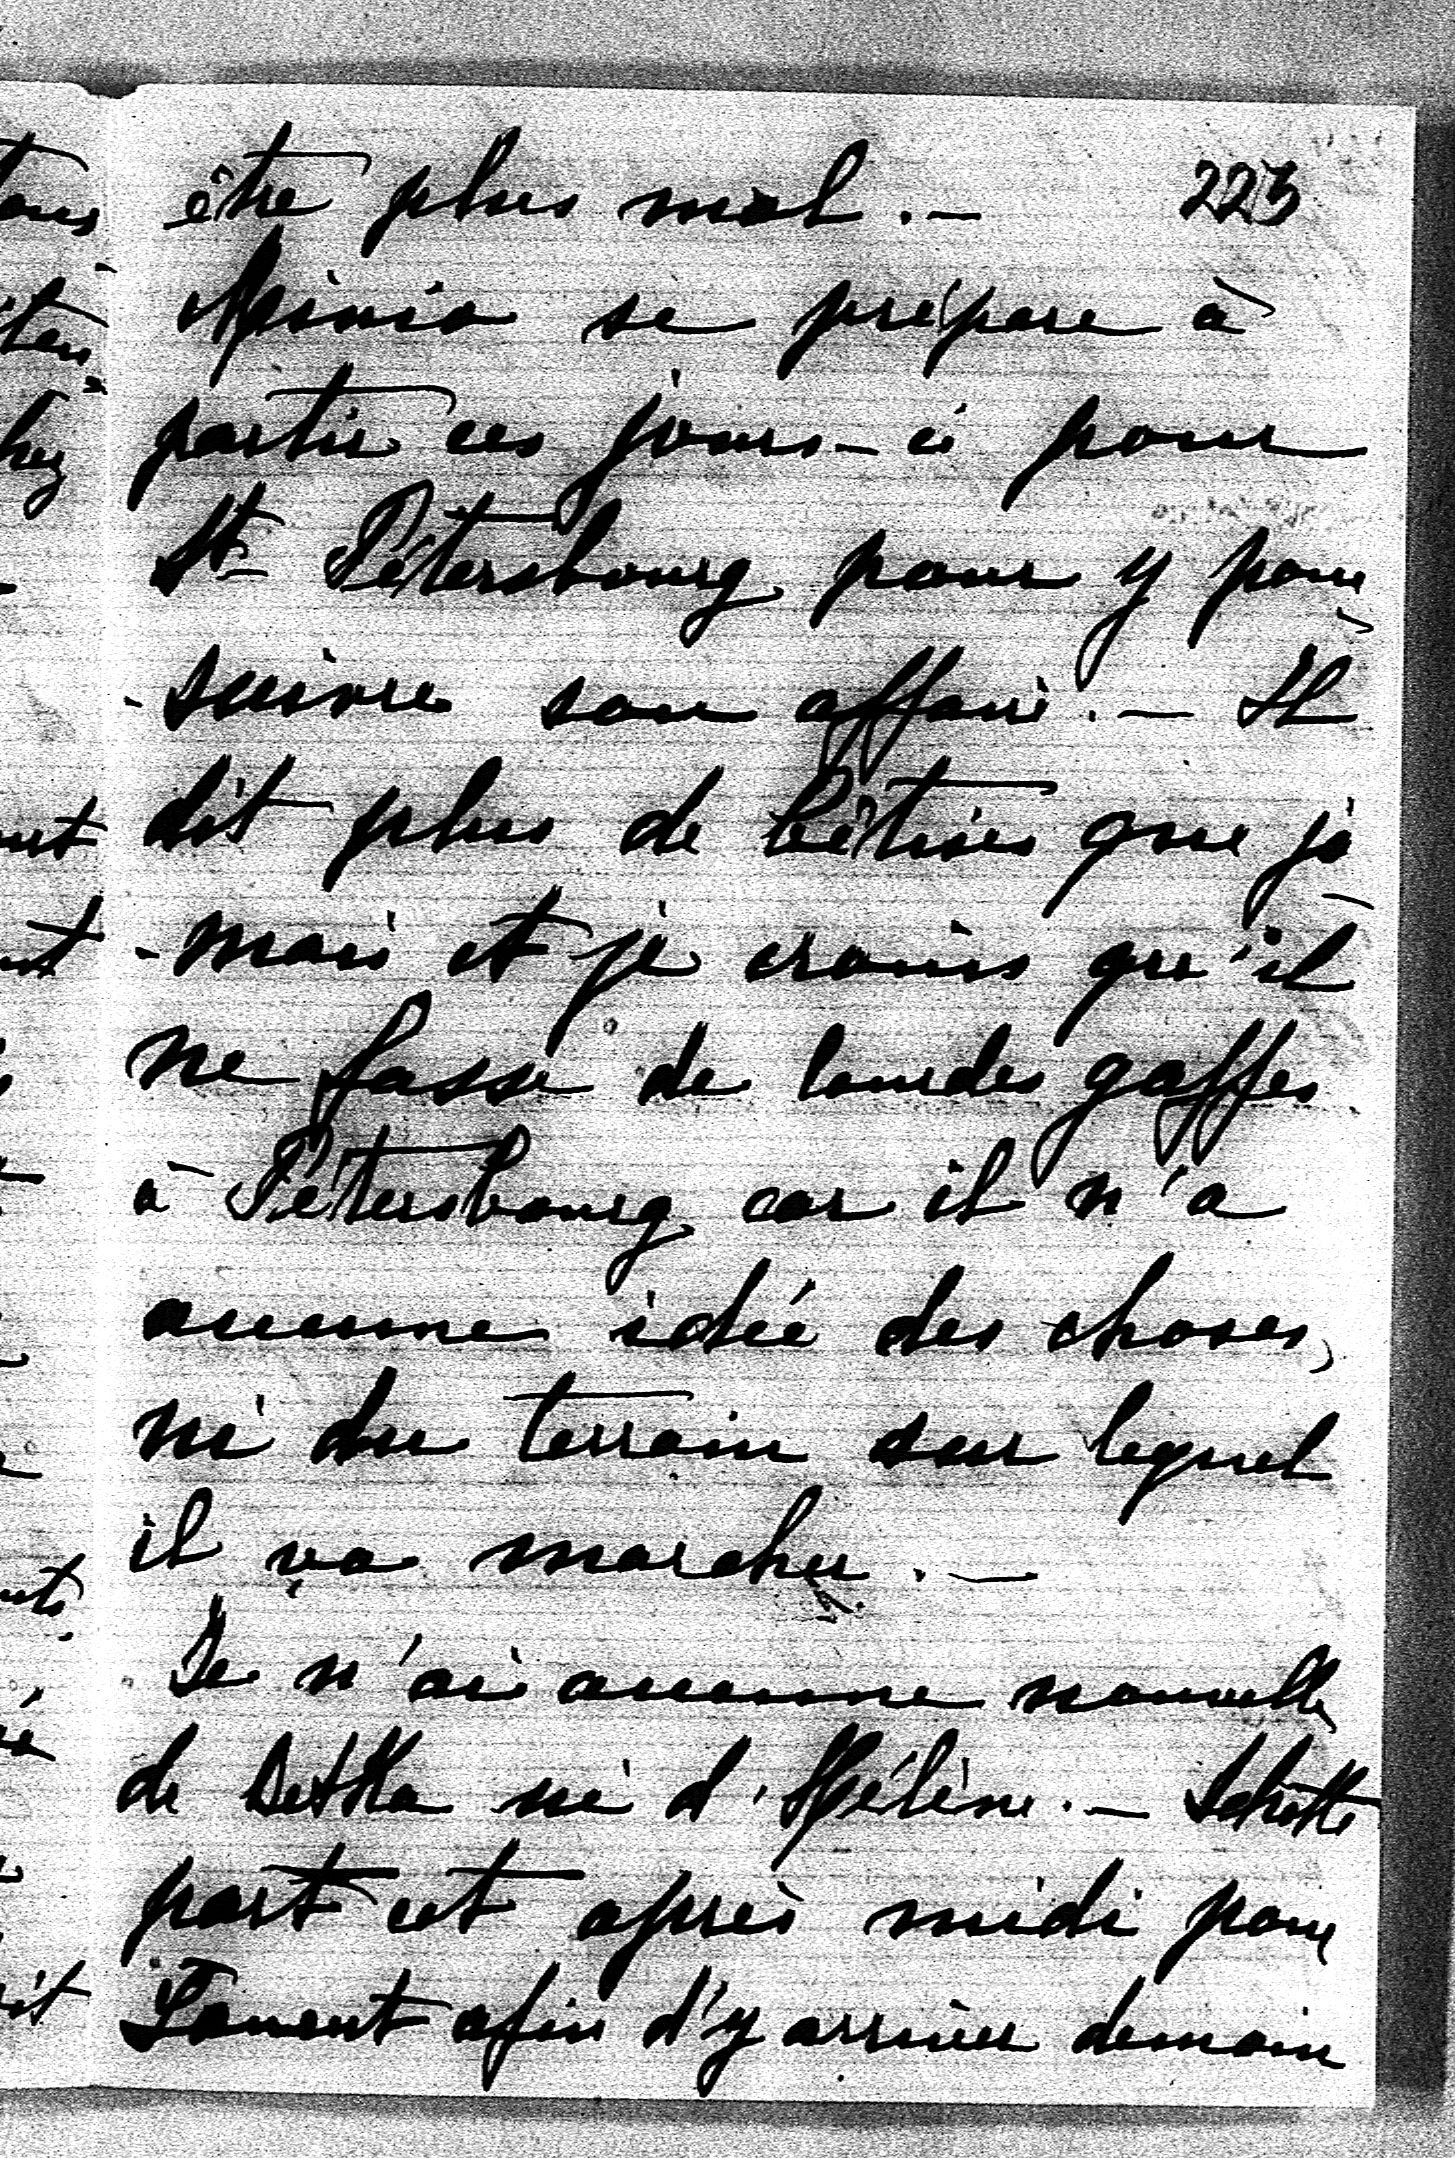 être plus mal. — 223
Minio se prépare à
partir ces jours-ci pour
St- Pétersbourg pour y pour-
-suivre son affaire. — Il
dit plus de bêtises que ja-
-mais et je crains qu'il
ne fasse de lourdes gaffes
à Pétersbourg car il n'a
aucune idée des choses,
ni du terrain sur lequel
il va marcher. —
Je n'ai aucune nouvelle
de ni d'Hélène. —
part cet après midi pour
afin d'y arriver demain